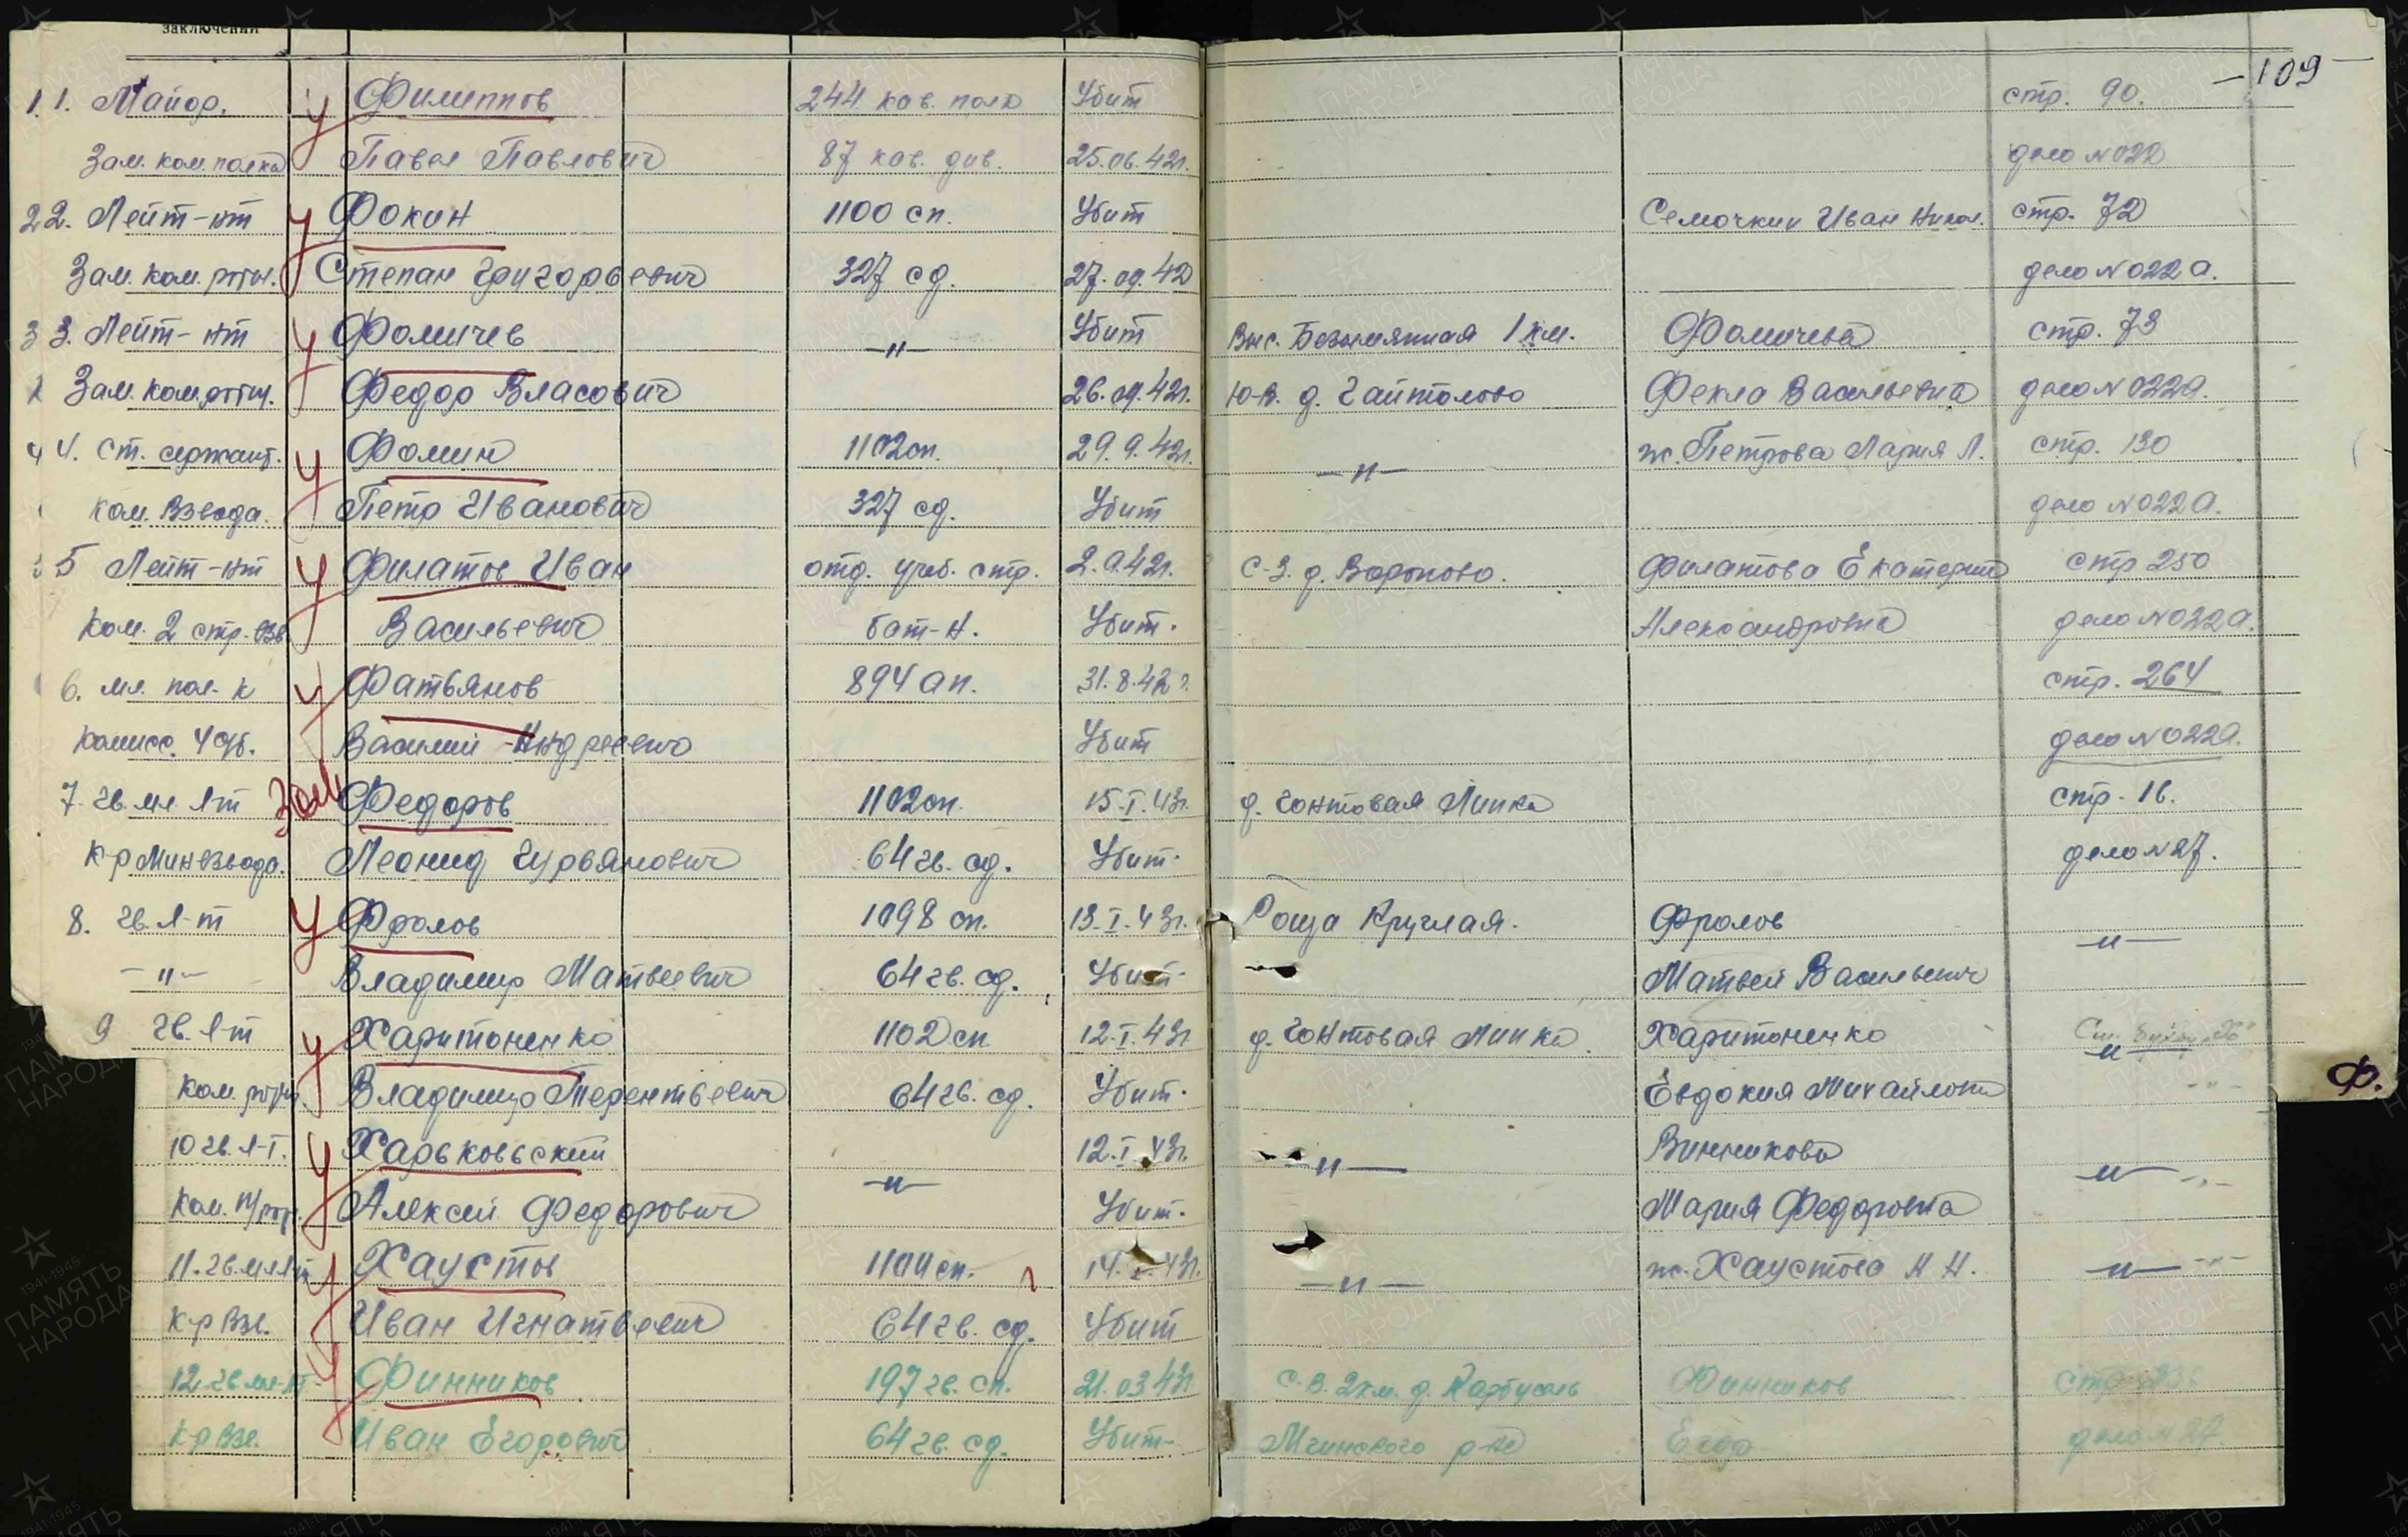 заключении
— 109 —
1 1. Майор. у Филиппов 244 кав. полк Убит стр. 90.
Зам. ком. полка Павел Павлович 87 кав. див. 25.06.42г. дело №022
2 2. Лейт-нт у Фокин 1100 сп. Убит Семочкин Иван Никол. стр. 72
Зам. ком. роты. Степан Григорьевич 327 сд. 27.09.42 дело №022а.
3 3. Лейт-нт у Фомичев —"— Убит Выс. Безымянная 1 км. Фомичева стр. 73
Зам. ком. роты. Федор Власович 26.09.42г. Ю-В. д. Гайтолово Фекла Васильевна дело №022а.
4 4. Ст. сержант. у Фомин 1102 сп. 29.9.42г. —"— ж. Петрова Мария Л. стр. 130
ком. взвода. Петр Иванович 327 сд. Убит дело №022а.
5 Лейт-нт у Филатов Иван отд. учеб. стр. 2.9.42г. С-З. д. Вороново. Филатова Екатерина стр 250
Ком. 2 стр. взв Васильевич бат-н. Убит. Александровна дело №022а.
6. мл. пол-к у Фатьянов 894 ап. 31.8.42г. стр. 264
Комисс. 4 об. Василий Андреевич Убит дело №022а.
7. гв. мл л-т Федоров 1102 сп. 15.I.43г. д. Гонтовая Липка стр. 16.
К-р Мин взвода. Леонид Гурьянович 64 гв. сд. Убит. дело №27.
8. гв. л-т у Фролов 1098 сп. 13.I.43г. Роща Круглая. Фролов —"—
—"— Владимир Матвеевич 64 гв. сд. Убит. Матвей Васильевич
9 гв. л-т у Харитоненко 1102 сп 12.I.43г д. Гонтовая Липка. Харитоненко —"—
Ком. роты. Владимир Терентьевич 64 гв. сд. Убит. Евдокия Михайловна
Ф.
10 гв. л-т. у Харьковский —"— 12.I.43г. —"— Винникова —"—
Ком. п/рот. Алексей Федорович Убит. Мария Федоровна
11. гв. мл л-т у Хаустов 1104 сп. 14.I.43г. —"— ж. Хаустова Н Н. —"—
К-р Взв. Иван Игнатьевич 64 гв. сд. Убит
12. гв. мл-лт у Финников 197 гв. сп. 21.03.43г С.В. 2 км. д. Карбусель Финников стр.
К-р Взв. Иван Егорович 64 гв. сд. Убит. Мгинского р-на Егор дело №27.
ПАМЯТЬ НАРОДА
1941-1945